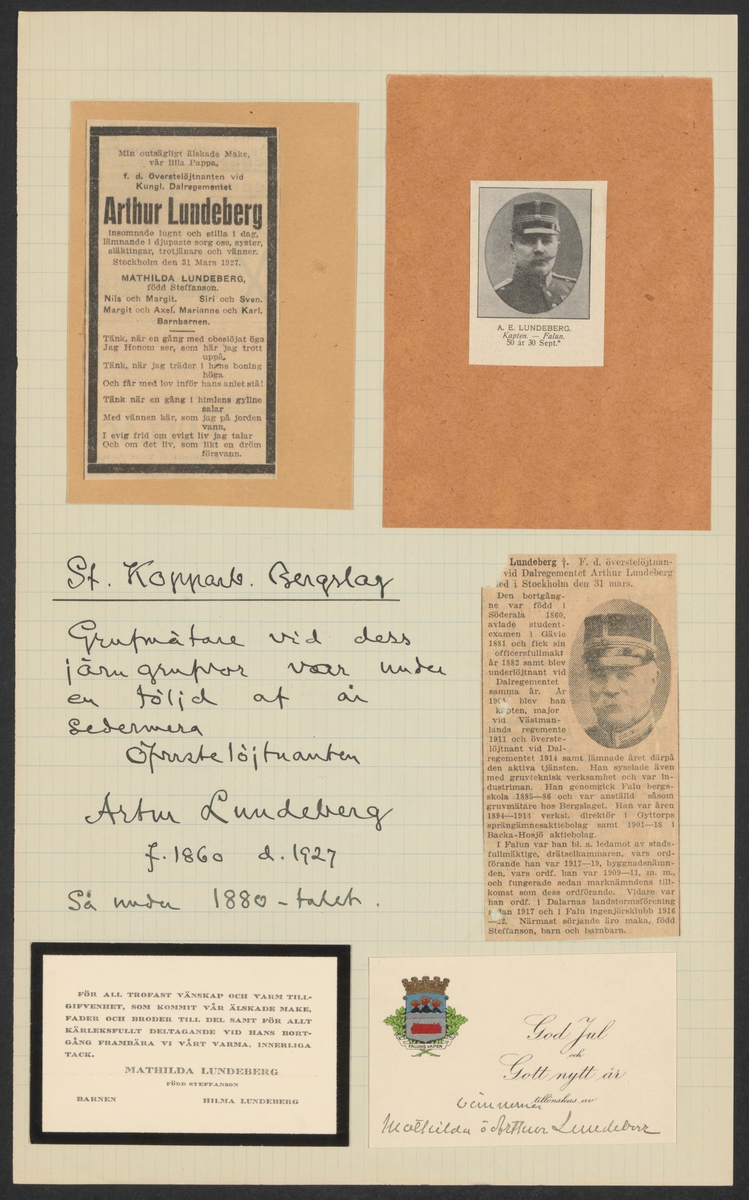 Min outsägligt älskade Make,
vår lilla Pappa,
f. d. Överstelöjtnanten vid
Kungl. Dalregementet
Arthur Lundeberg
insomnade lugnt och stilla i dag,
lämnande i djupaste sorg oss, syster,
släktingar, trotjänare och vänner.
Stockholm den 31 Mars 1927.
MATHILDA LUNDEBERG,
född Steffanson.
Nils och Margit. Siri och Sven.
Margit och Axel. Marianne och Karl.
Barnbarnen.
Tänk, när en gång med obeslöjat öga
Jag Honom ser, som här jag trott
uppå,
Tänk, när jag träder i hans boning
höga
Och får med lov inför hans anlet stå!
Tänk när en gång i himlens gyllne
salar
Med vännen kär, som jag på jorden
vann,
I evig frid om evigt liv jag talar
Och om det liv, som likt en dröm
försvann.
A. E. LUNDEBERG.
Kapten. — Falun.
50 år 30 Sept.*
St. Kopparb. Bergslag
Grufmätare vid dess
järngrufvor var under
en följd af år
sedermera
Öfverstelöjtnanten
Artur Lundeberg
f. 1860 d. 1927
Så under 1880-talet.
Lundeberg †. F. d. överstelöjtnan-
vid Dalregementet Arthur Lundeberg
led i Stockholm den 31 mars.
Den bortgång-
ne var född i
Söderala 1860,
avlade student-
examen i Gävle
1881 och fick sin
officersfullmakt
år 1882 samt blev
underlöjtnant vid
Dalregementet
samma år. År
1901 blev han
kapten, major
vid Västman-
lands regemente
1911 och överste-
löjtnant vid Dal-
regementet 1914 samt lämnade året därpå
den aktiva tjänsten. Han sysslade även
med gruvteknisk verksamhet och var in-
dustriman. Han genomgick Falu bergs-
skola 1885—86 och var anställd såsom
gruvmätare hos Bergslaget. Han var åren
1894—1913 verkst. direktör i Gyttorps
sprängämnesaktiebolag samt 1901—18 i
Backa-Hosjö aktiebolag.
I Falun var han bl. a. ledamot av stads-
fullmäktige, drätselkammaren, vars ord-
förande han var 1917—19, byggnadsnämn-
den, vars ordf. han var 1909—11, m. m.,
och fungerade sedan marknämndens till-
komst som dess ordförande. Vidare var
han ordf. i Dalarnas landstormsförening
sedan 1917 och i Falu ingenjörsklubb 1916
Närmast sörjande äro maka, född
Steffanson, barn och barnbarn.
FÖR ALL TROFAST VÄNSKAP OCH VARM TILL-
GIFVENHET, SOM KOMMIT VÅR ÄLSKADE MAKE,
FADER OCH BRODER TILL DEL SAMT FÖR ALLT
KÄRLEKSFULLT DELTAGANDE VID HANS BORT-
GÅNG FRAMBÄRA VI VÅRT VARMA, INNERLIGA
TACK.
MATHILDA LUNDEBERG
FÖDD STEFFANSON
BARNEN HILMA LUNDEBERG
FALUNS VAPEN
God Jul
och
Gott nytt år
tillönskas av
vännerna
Mathilda o Arthur Lundeberg